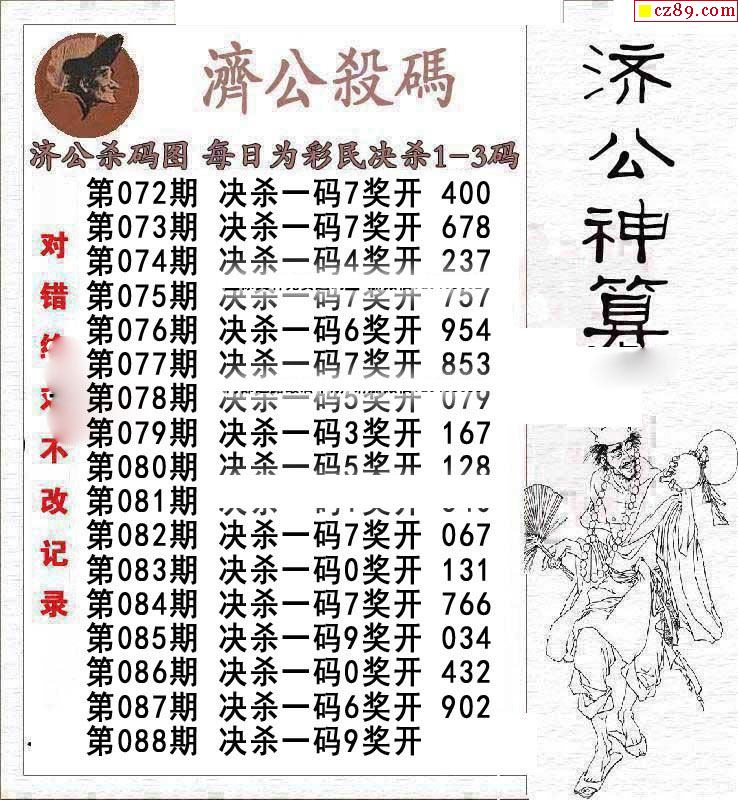 cz89.com
濟公殺碼
济公杀码图 每日为彩民决杀1-3码
第072期 决杀一码7奖开 400
第073期 决杀一码7奖开 678
第074期 决杀一码4奖开 237
第075期 决杀一码7奖开 757
第076期 决杀一码6奖开 954
第077期 决杀一码7奖开 853
第078期 决杀一码5奖开 079
第079期 决杀一码3奖开 167
第080期 决杀一码5奖开 128
第081期
第082期 决杀一码7奖开 067
第083期 决杀一码0奖开 131
第084期 决杀一码7奖开 766
第085期 决杀一码9奖开 034
第086期 决杀一码0奖开 432
第087期 决杀一码6奖开 902
第088期 决杀一码9奖开
对错绝对不改记录
济公神算